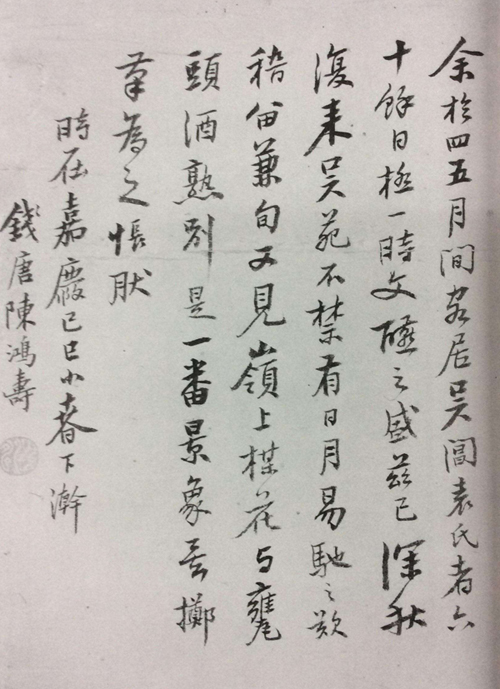 余於四五月間客居吳閶袁氏者六
十餘日極一時文醼之盛茲已深秋
復来吳苑不禁有日月易馳之歎
稽畄兼旬又見嶺上楳花与甕
頭酒熟別是一番景象擲
筆為之悵肰
時在嘉慶己巳小春下澣
錢唐陳鴻壽